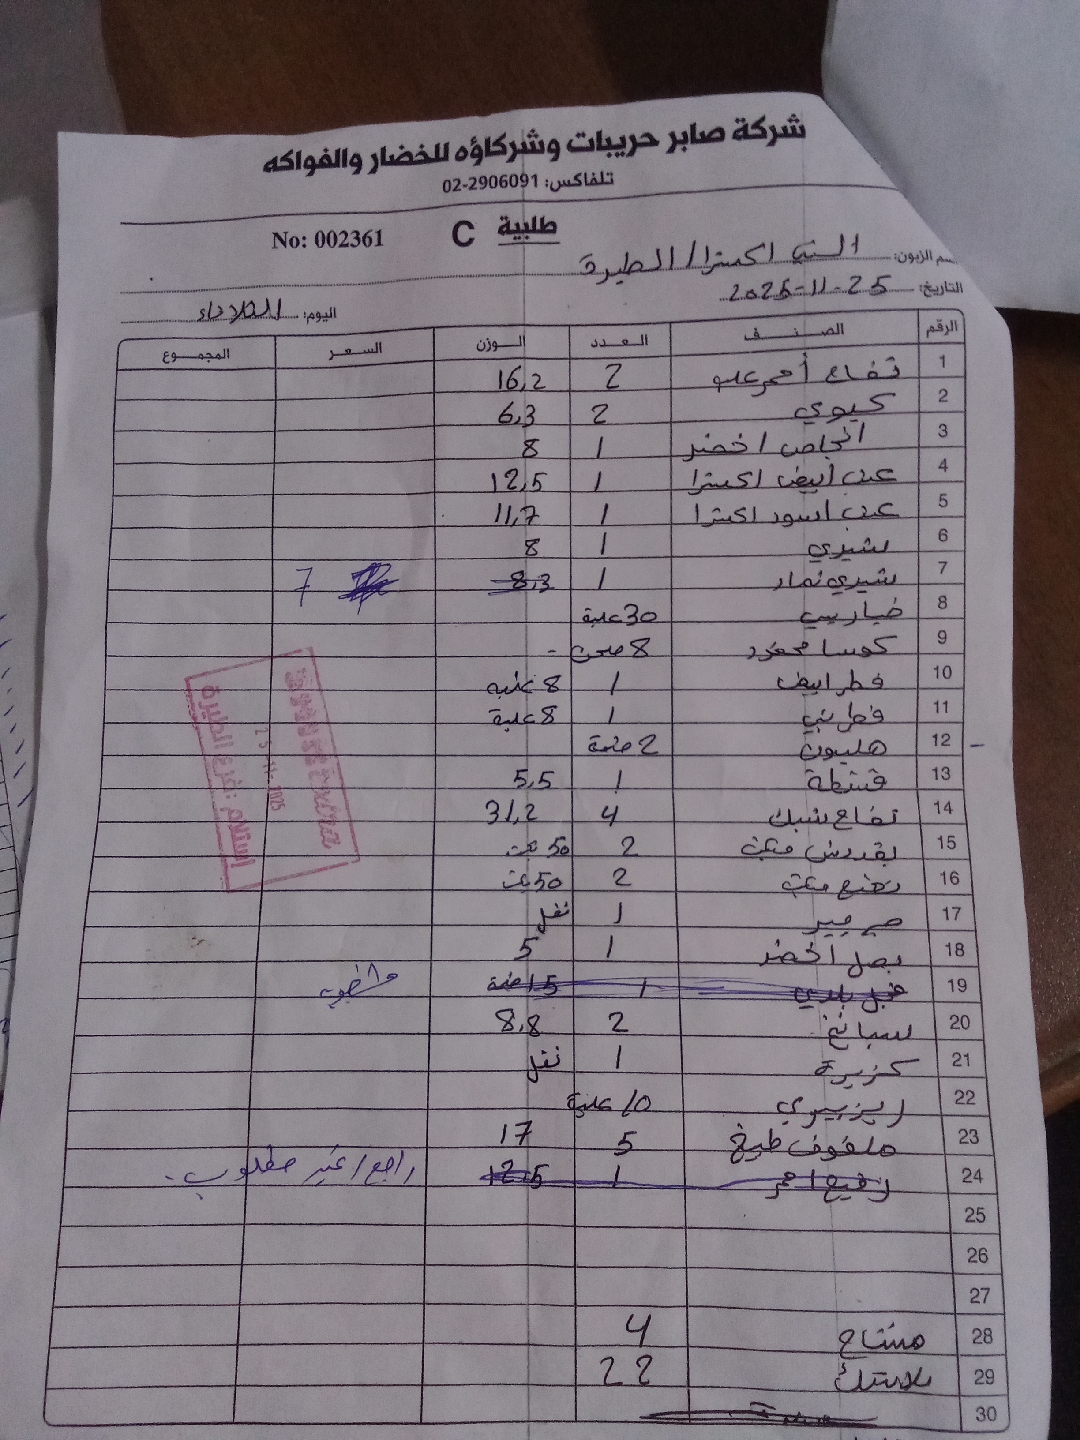 شركة صابر حريبات وشركاؤه للخضار والفواكه
تلفاكس: 02-2906091
No: 002361 طلبية C
اسم الزبون: السني اكسترا/الطيرة
التاريخ: 25-11-2025
اليوم: الثلاثاء
الرقم الصنف العدد الوزن السعر المجموع
1 تفاح أحمر علب 2 16,2
2 كيوي 2 6,3
3 انجاص اخضر 1 8
4 عنب أبيض اكسترا 1 12,5
5 عنب اسود اكسترا 1 11,7
6 شيري 1 8
7 شيري تمار 1 8,3 7
8 خيار بيبي 30 علبة
9 كوسا محفور 8 صحن -
10 فطر ابيض 1 8 علبة
11 فطر بني 1 8 علبة
12 هليون 2 ضمة
13 قشطة 1 5,5
14 تفاح شبك 4 31,2
15 بقدونس 2 50
16 نعنع 2 50
17 1 نفل
18 بصل اخضر 1 5
19 فجل بلدي 1 15 ضمة
20 سبانخ 2 8,8
21 كزبرة 1 نفل
22 ريزبيري 10 علبة
23 ملفوف طبيخ 5 17
24 احمر 1 12,5 راجع / غير مطلوب.
25
26
27
28 مشتاح 4
29 بلاستك 22
30
Extra
25.11.2025
استلام فرع الطيرة